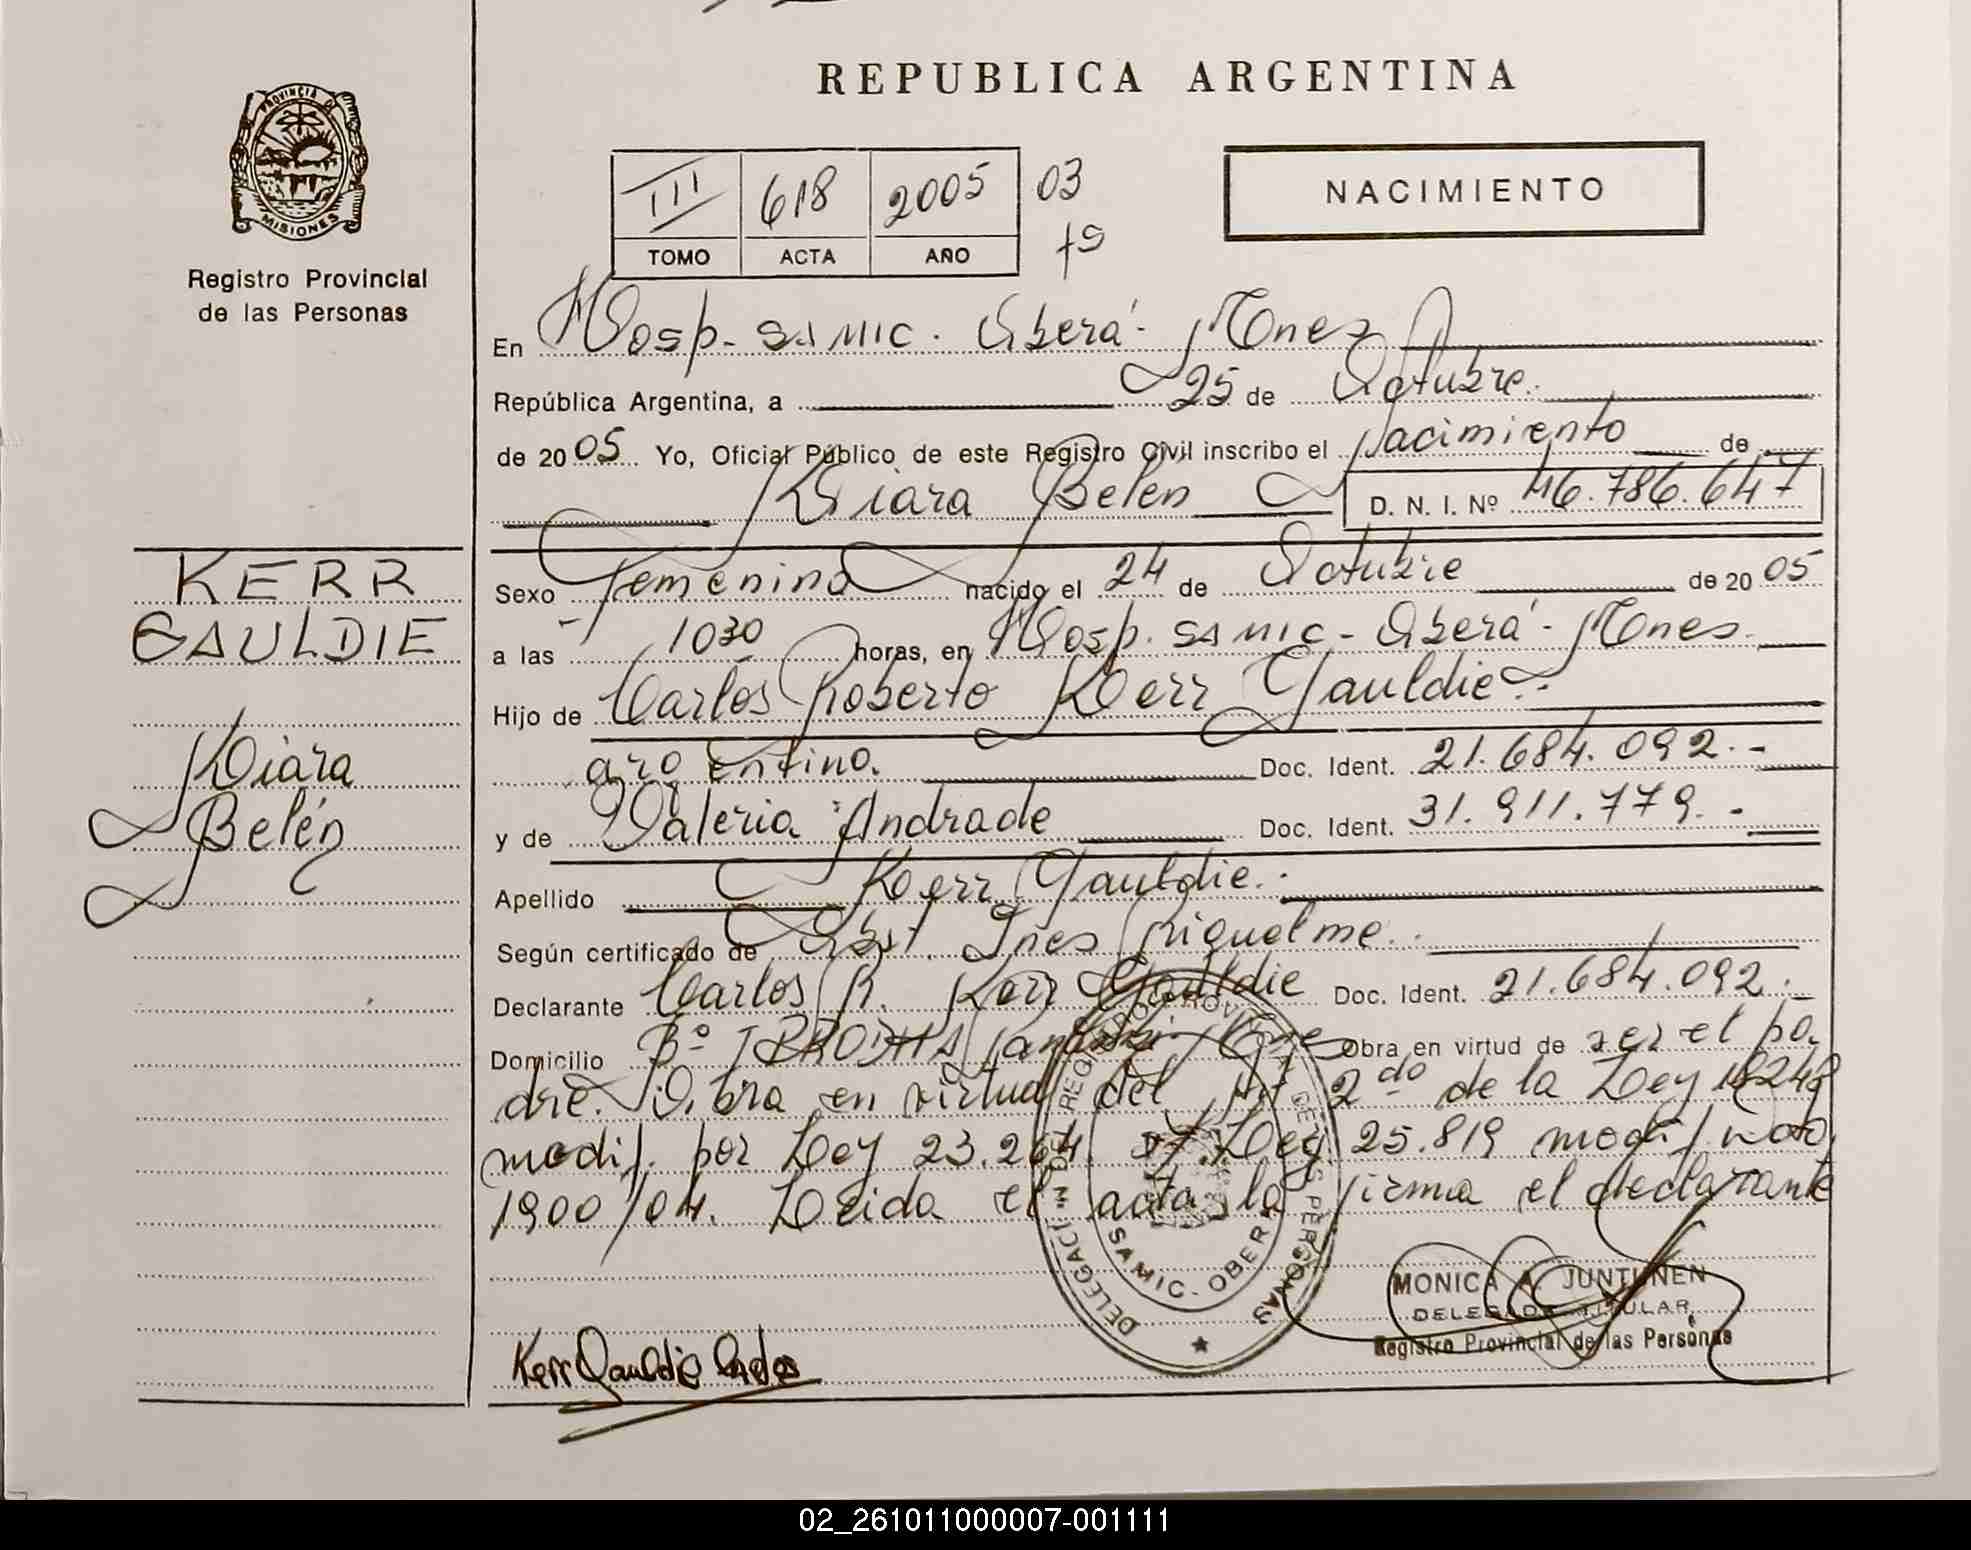 REPUBLICA ARGENTINA
PROVINCIA DE
MISIONES
Registro Provincial
de las Personas
III 618 2005 03
TOMO ACTA AÑO
NACIMIENTO
En Hosp. SAMIC. Oberá - Mnes
República Argentina, a 25 de Octubre.
de 2005 Yo, Oficial Público de este Registro Civil inscribo el Nacimiento de
Kiara Belén D. N. I. Nº 46.786.647
KERR
GAULDIE
Kiara
Belén
Sexo Femenino nacido el 24 de Octubre de 2005
a las 1030 horas, en Hosp. SAMIC - Oberá - Mnes.
Hijo de Carlos Roberto Kerr Gauldie.-
argentino. Doc. Ident. 21.684.092.-
y de Valeria Andrade Doc. Ident. 31.911.779.-
Apellido Kerr Gauldie.-
Según certificado de Obst. Ines Riquelme.
Declarante Carlos R. Kerr Gauldie Doc. Ident. 21.684.092.
Domicilio Bº Mnes Obra en virtud de ser el pa-
dre. Obra en virtud del Art 2do de la Ley 18248
modif. por Ley 23.264 Ley 25.819 modif.
1900/04. Leida el acta la firma el declarante
DELEGACION DEL REGISTRO PROVINCIAL DE LAS PERSONAS
SAMIC - OBERA
MONICA A. JUNTUNEN
DELEGADA TITULAR
Registro Provincial de las Personas
Kerr Gauldie Carlos
02_261011000007-001111